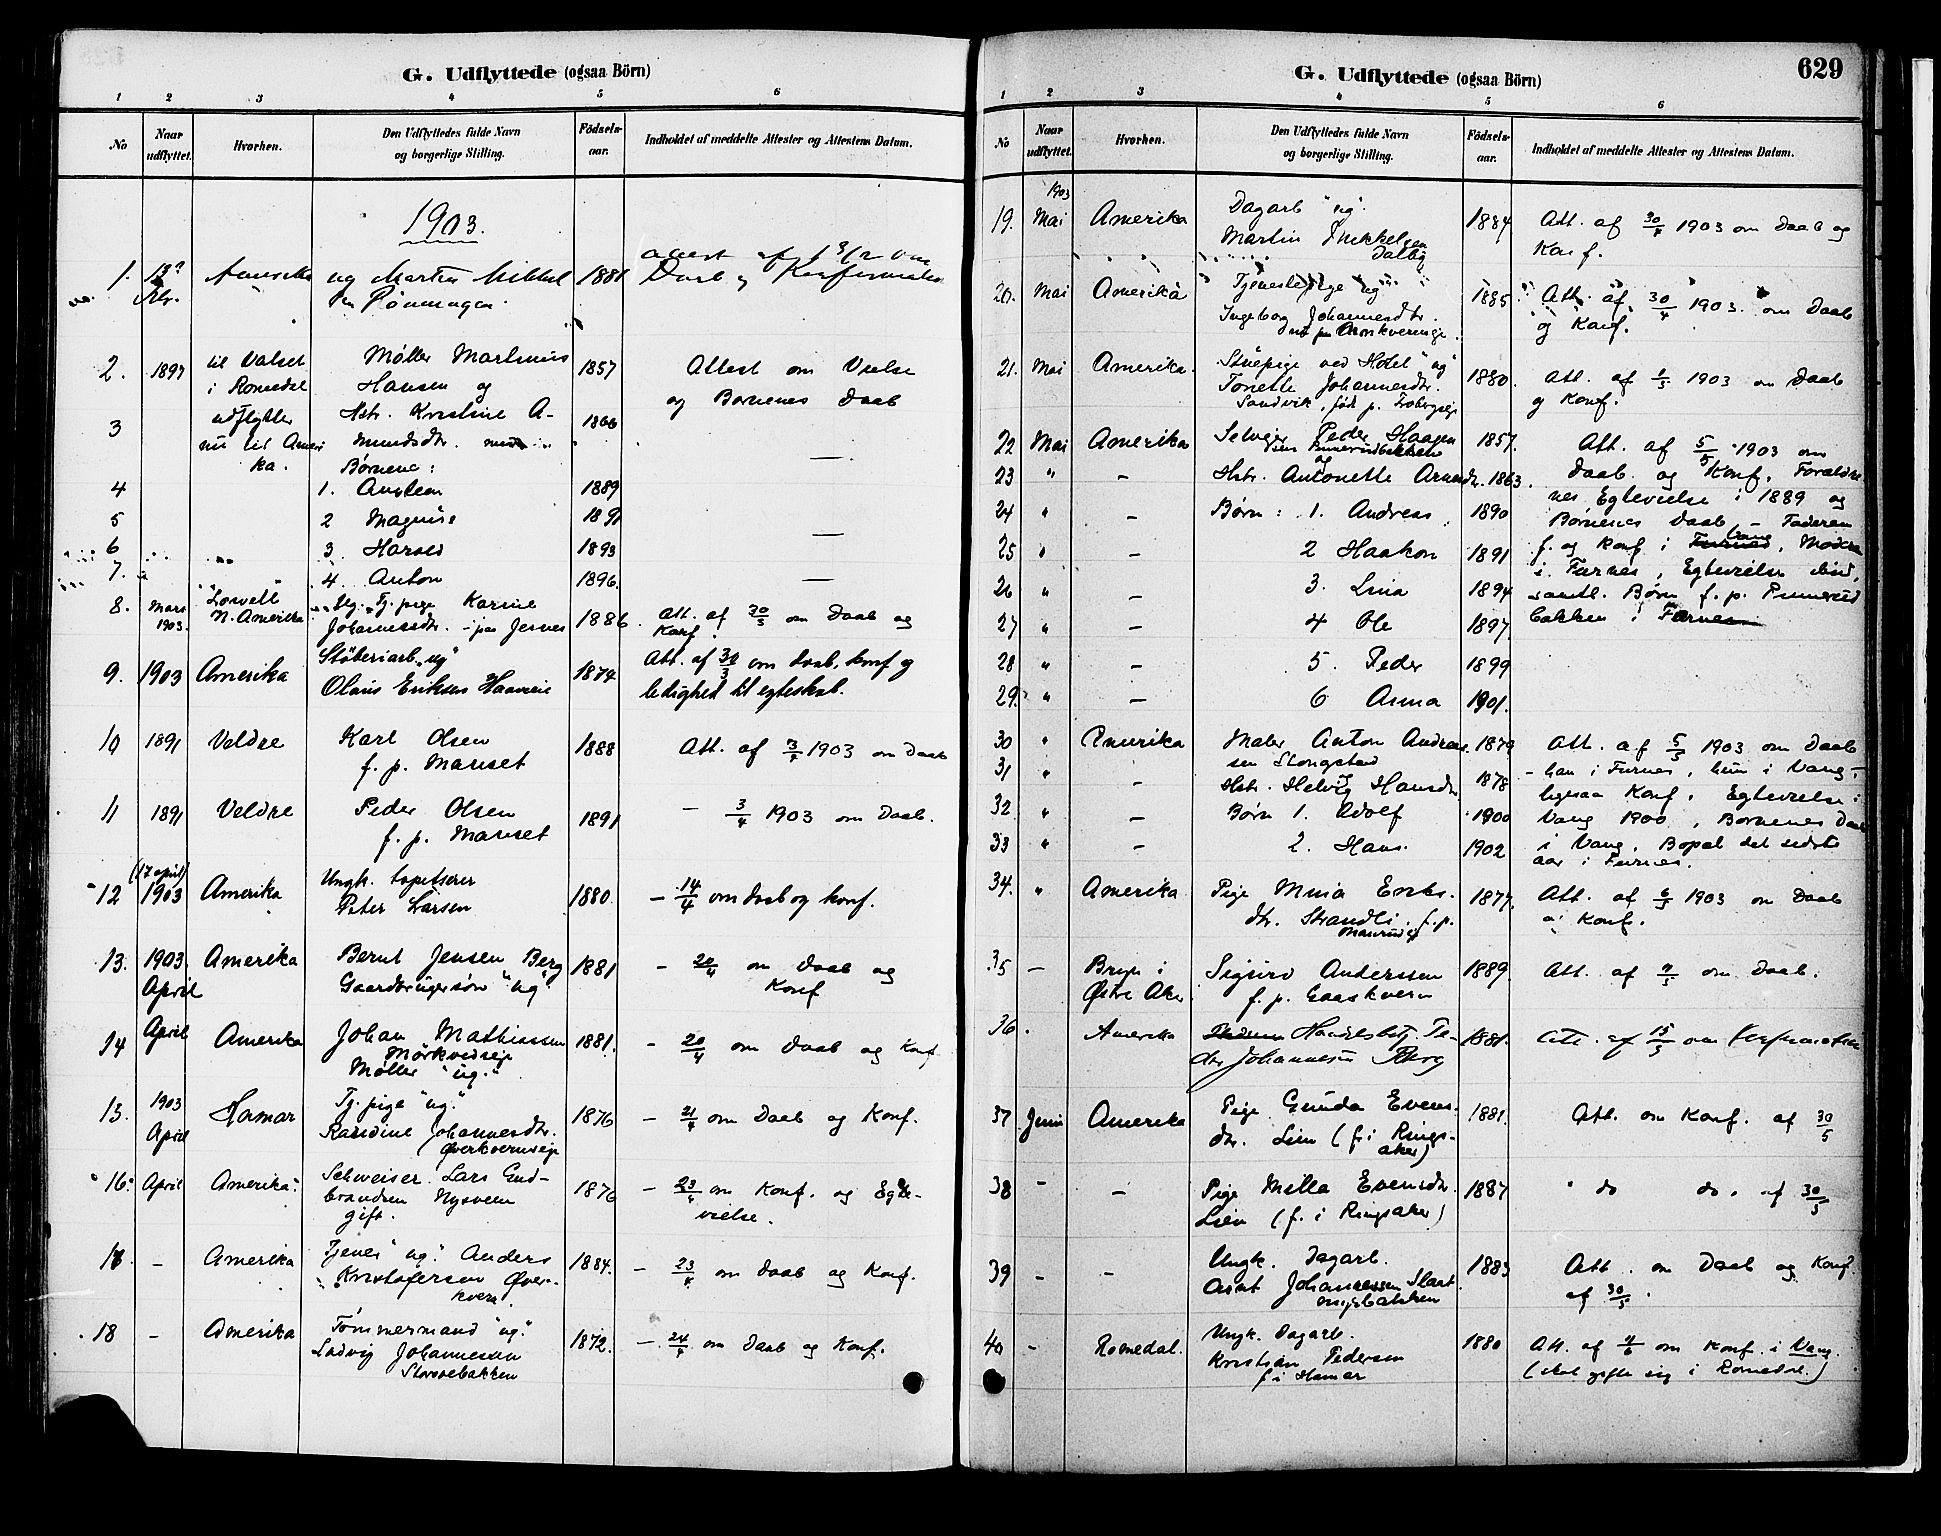 G. Udflyttede (ogsaa Börn)
1 2 3 4 5 6
No
Naar udflyttet.
Hvorhen.
Den Udflyttedes fulde Navn og borgerlige Stilling.
Födselsaar.
Indholdet af meddelte Attester og Attestens Datum.
1903.
1. Amerika ug Martin Mikkel 1881
Daab og Konfirmation
2. 1897 til Valset Møller Martinius 1857 Attest om Vielse
i Romedal Hansen og og Børnenes Daab
3 udflytter Hstr. Kristine A- 1866
nu til Ameri mundsdtr. med
ka. Børnene: —
4 1. Austeen 1889
5 2 Magnus 1891 —
6 3. Harald 1893
7. 4. Anton 1896. —
8. Mars 1903. Lowell N. Amerika Tj. pige Karine 1886. Att. af 30/3 om Daab og
Johannesdtr. Konf.
9. 1903 Amerika Støberiarb. "ug" 1874 Att. af 30/3 om daab, konf og
Olaus Eriksen ledighed til egteskab.
10 1891 Veldre Karl Olsen 1888 Att. af 3/4 1903 om Daab
f. p. Mariset
11 1891 Veldre Peder Olsen 1891 — 3/4 1903 om Daab.
f. p. Mariset
12 (17 april) 1903 Amerika Ungk. tapetserer 1880. — 14/4 om daab og konf.
Peter Larsen
13. 1903 April Amerika Bernt Jensen Berg 1881 — 20/4 om Daab og
Gaardbrugersøn "ug" Konf
14 April Amerika Johan Mathiassen 1881. — 20/4 om Daab og Konf.
Mørkvedseje
Møller "ug."
15. 1903 April Hamar Tj. pige "ug." 1876 — 21/4 om Daab og Konf.
Karidine Johannesdtr.
Øverkverneeje
16. April Amerika. Schweiser Lars Gud- 1876 — 23/4 om Konf. og Egte-
brandsen Nysveen vielse.
gift.
18 — Amerika Tjener "ug". Anders 1884. — 23/4 om Daab og Konf.
Kristofersen Øver-
kvern.
18 — Amerika Tømmermand "ug." 1872. — 24/4 om Daab og Konf.
Ludvig Johannessen
Storsvebakken
G. Udflyttede (ogsaa Börn)
629
1 2 3 4 5 6
No
Naar udflyttet.
Hvorhen.
Den Udflyttedes fulde Navn og borgerlige Stilling.
Födselsaar.
Indholdet af meddelte Attester og Attestens Datum.
19. 1903 Mai Amerika Dagarb "ug". 1884 Att. af 30/4 1903 om Daab og
Martin Mikkelsen Dalby Konf.
20. Mai Amerika Tjenestepige "ug" 1885 Att. af 30/4 1903 om Daab
Ingeborg Johannesdtr. og Konf.
21. Mai Amerika. Stuepige ved Hotel "ug" 1880. Att. af 1/5 1903 om Daab
Tonette Johannesdtr. og Konf.
Sandvik, født p. Frobergseje
22 Mai Amerika Selveier Peder Haagen 1857. Att. af 5/5 1903 om
sen Pinnerudbakken og
23 " — Hstr. Antonette Arnesdtr. 1863. Daab og Konf. Forældre
nes Egtevielse i 1889 og
24 " — Børn: 1. Andreas 1890 Børnenes Daab — Faderen
25 " — 2 Haakon 1891 f. og konf i Furnes Vang, Moder
i Furnes, Egtevielse ibid,
26 " — 3. Lina 1894 samtl. Børn f. p. Pinnerud
27 " — 4 Ole 1897 bakken i Furnes
28 " — 5. Peder 1899
29. " — 6 Anna 1901.
30 " Amerika Maler Anton Andreas 1879 Att. af 5/5 1903 om Daab
sen Stongstad
31 " — Hstr. Helvig Hansdtr 1878 – han i Furnes, hun i Vang –
ligesaa Konf. Egtevielse i
32 " — Børn 1. Adolf 1900 Vang 1900, Børnenes Daab
33 " — 2. Hans. 1902 i Vang. Bopæl det sidste
aar i Furnes.
34. " Amerika Pige Mina Eriks- 1877. Att. af 6/5 1903 om Daab
dtr. Strandli. f. p. og Konf.
35 — Bryn i Sigurd Anderssen 1889 Att. af 7/5 om Daab.
Østre Aker. f. p. Gaaskvern
36. Amerika Handelsbetj. Pe- 1881. Att. af 15/5 om Konfirmation
der Johannesen Berg
37 Juni Amerika Pige Gunda Evens- 1881. Att. om Konf. af 30/5
dtr. Lien (f. i Rings-
aker)
38 — — Pige Milla Evensdtr. 1887 " do do. af 30/5
Lien (f. i Ringsaker)
39 — — Ungk. Dagarb. 1883 Att. om Daab og Konf.
Johannessen Slaat af 30/5.
engsbakken
40 — Romedal. Ungk. Dagarb. 1880 Att. af 7/6 om Konf. i Vang.
Kristian Pedersen (skal gifte sig i Romedal.)
f. i Hamar